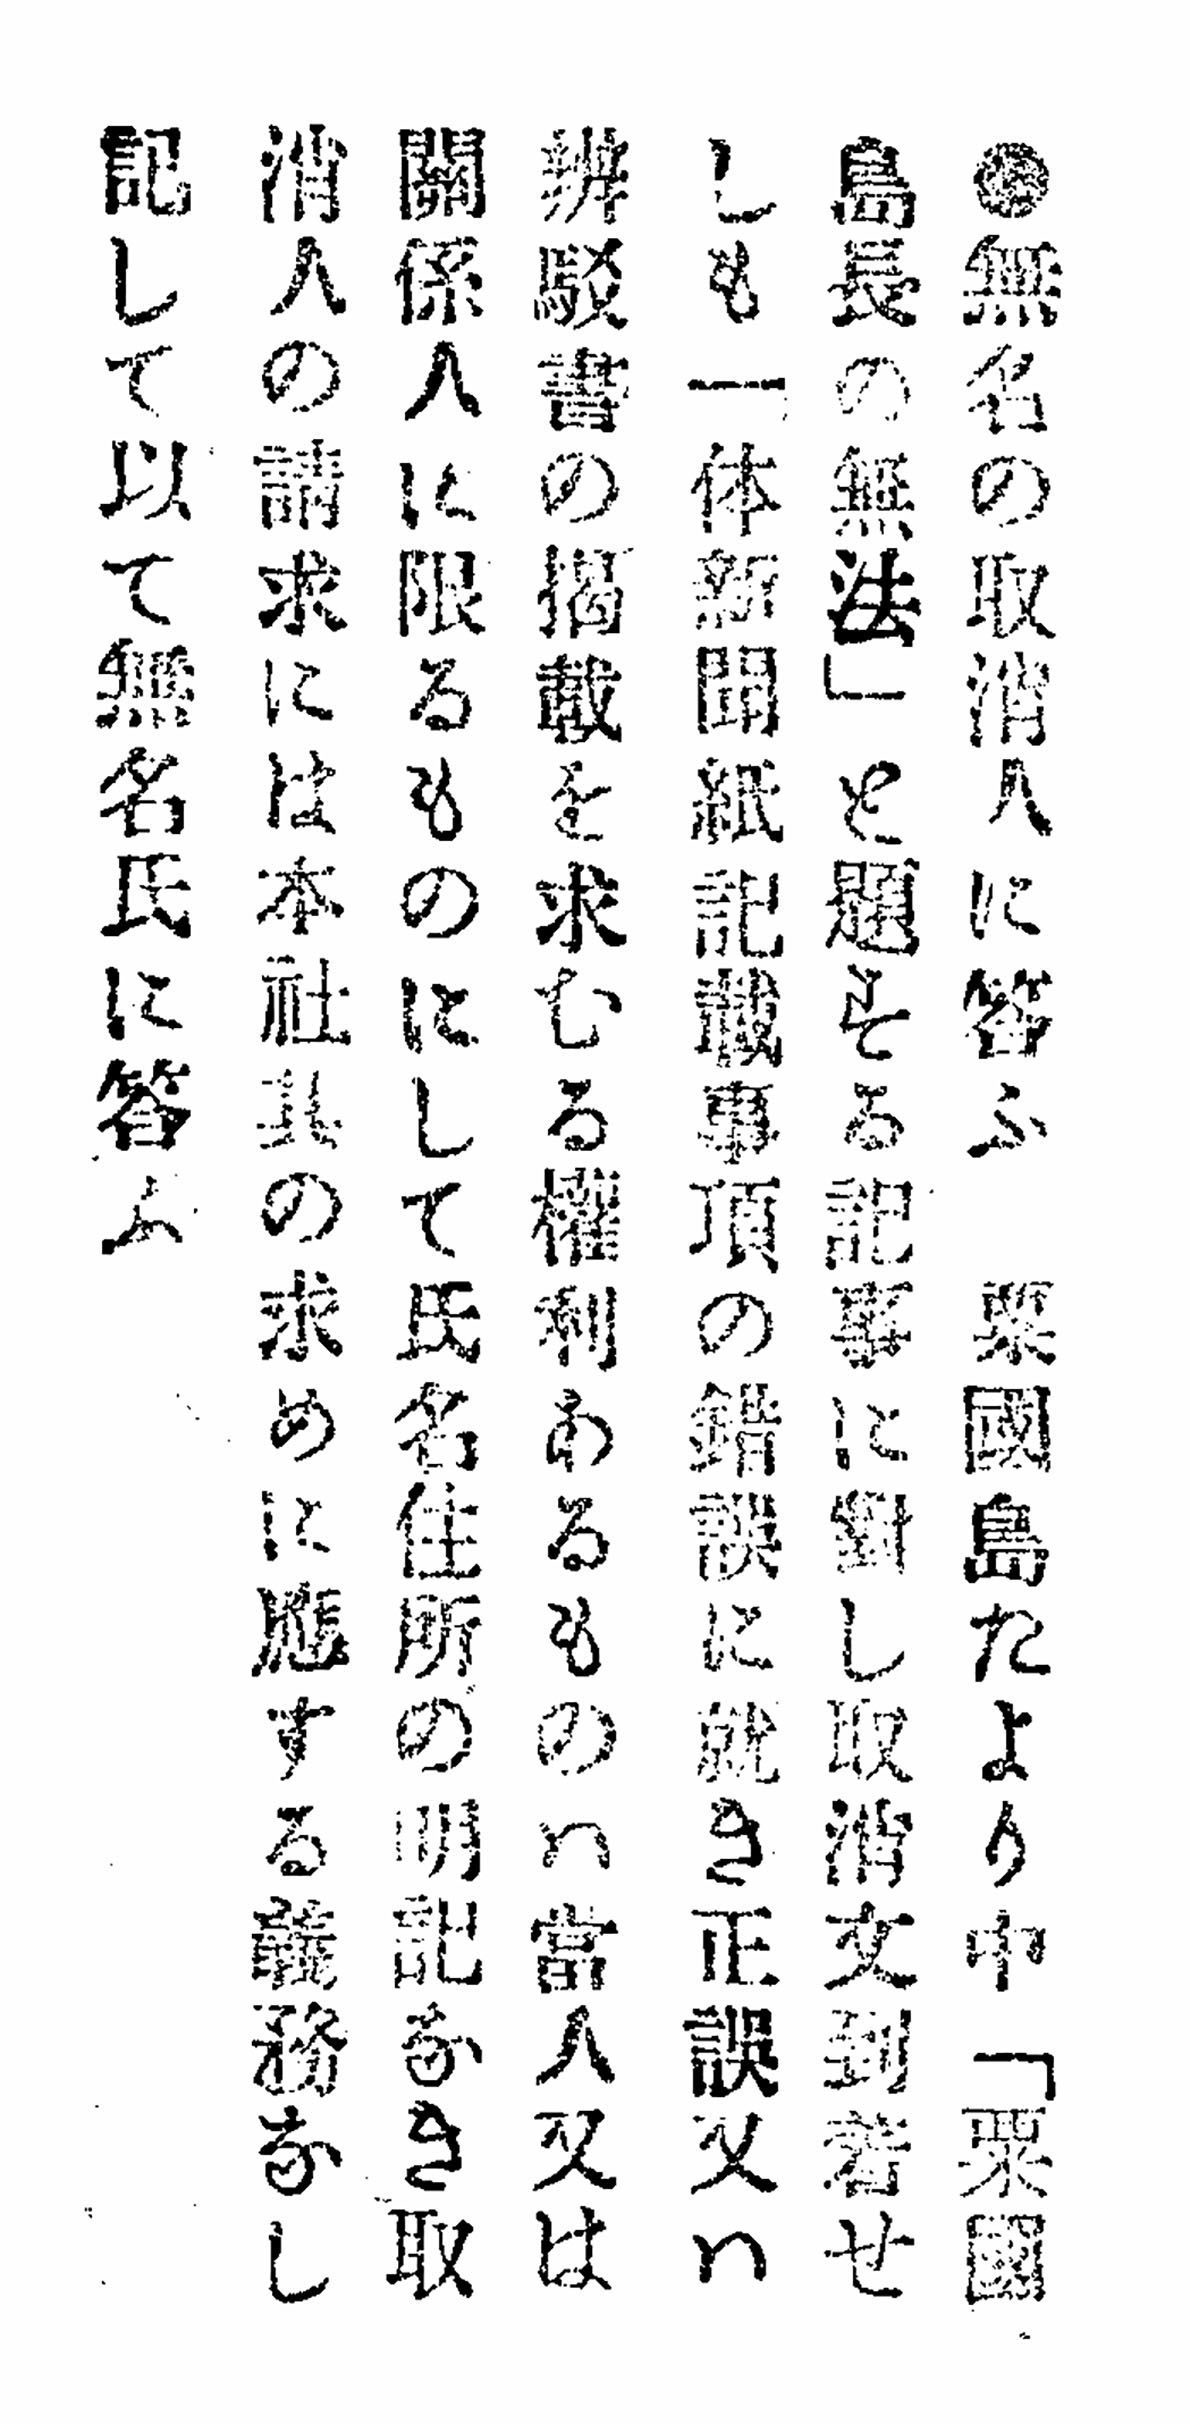 ◉無名の取消人に答ふ　粟國島たより中「粟國
島長の無法」と題する記事に對し取消文到着せ
しも一体新聞紙記載事項の錯誤に就き正誤又ハ
辨駁書の掲載を求むる權利あるものハ當人又は
關係人に限るものにして氏名住所の明記なき取
消人の請求には本社其の求めに應する義務なし
記して以て無名氏に答ふ